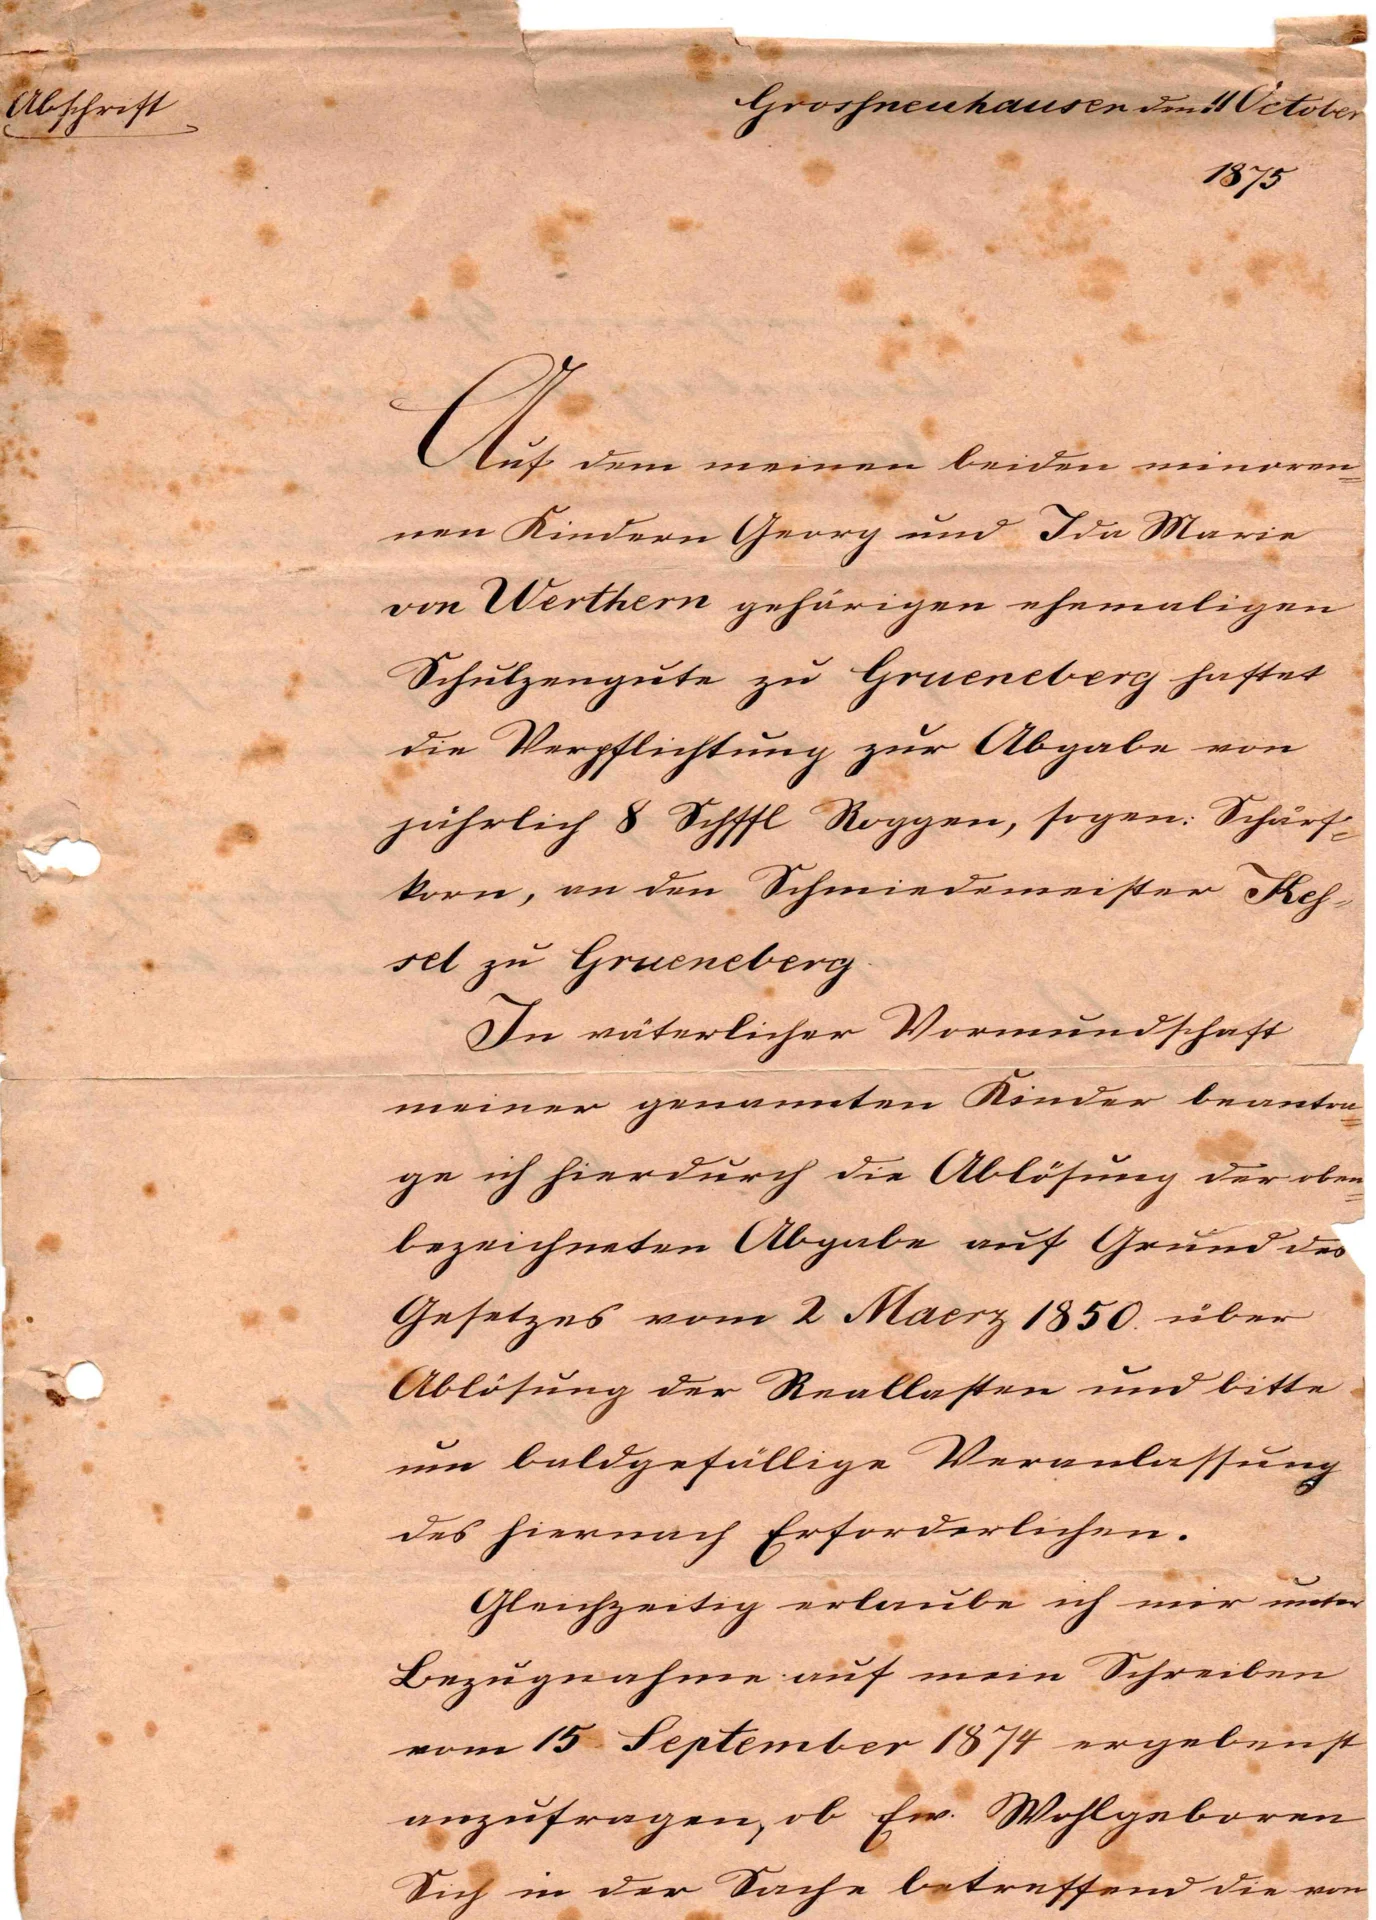 Abschrift
Grossneuhausen den 11 October
1875
Auf dem meinen beiden minoren=
nen Kindern Georg und Ida Marie
von Werthern gehörigen ehemaligen
Schulzengute zu Grueneberg haftet
die Verpflichtung zur Abgabe von
jährlich 8 Schffl Roggen, sogen: Schärf=
korn, an den Schmiedemeister Kes=
sel zu Grueneberg.
In väterlicher Vormundschaft
meiner genannten Kinder beantra=
ge ich hierdurch die Ablösung der oben=
bezeichneten Abgabe auf Grund des
Gesetzes vom 2 Maerz 1850. über
Ablösung der Reallasten und bitte
um baldgefällige Veranlassung
des hiernach Erforderlichen.
Gleichzeitig erlaube ich mir unter
Bezugnahme auf mein Schreiben
vom 15 September 1874 ergebenst
anzufragen, ob Ew. Wohlgeboren
Sich in der Sache betreffend die von